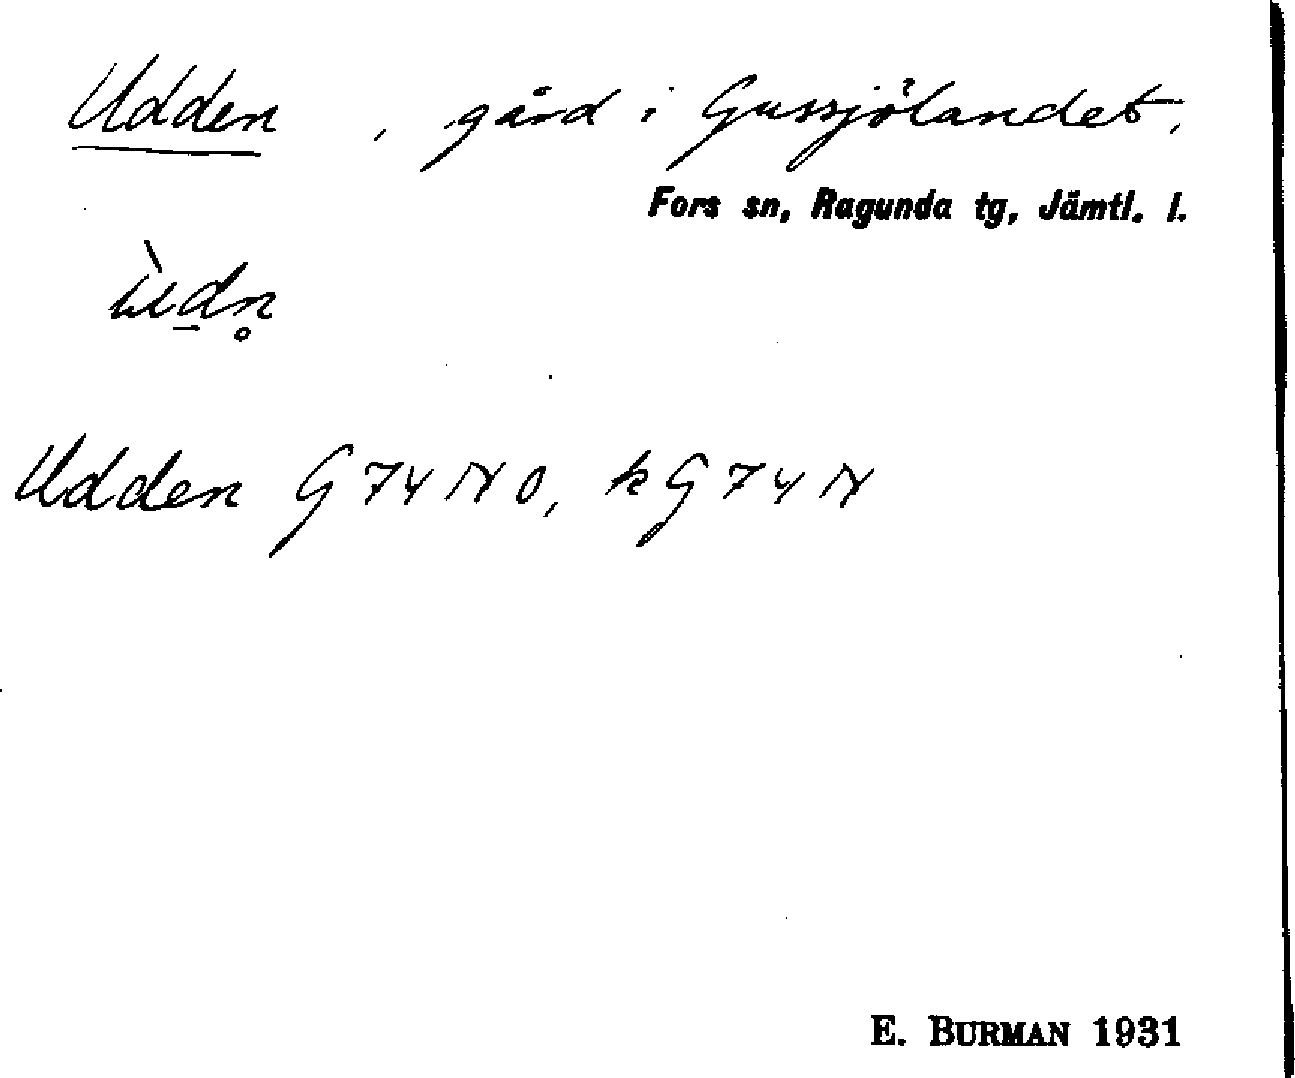 Udden, gård i Gussjölandet,
Fors sn, Ragunda tg, Jämtl. l.
ùd̲n̥
Udden G 74 N O, k G 74 N
E. BURMAN 1931